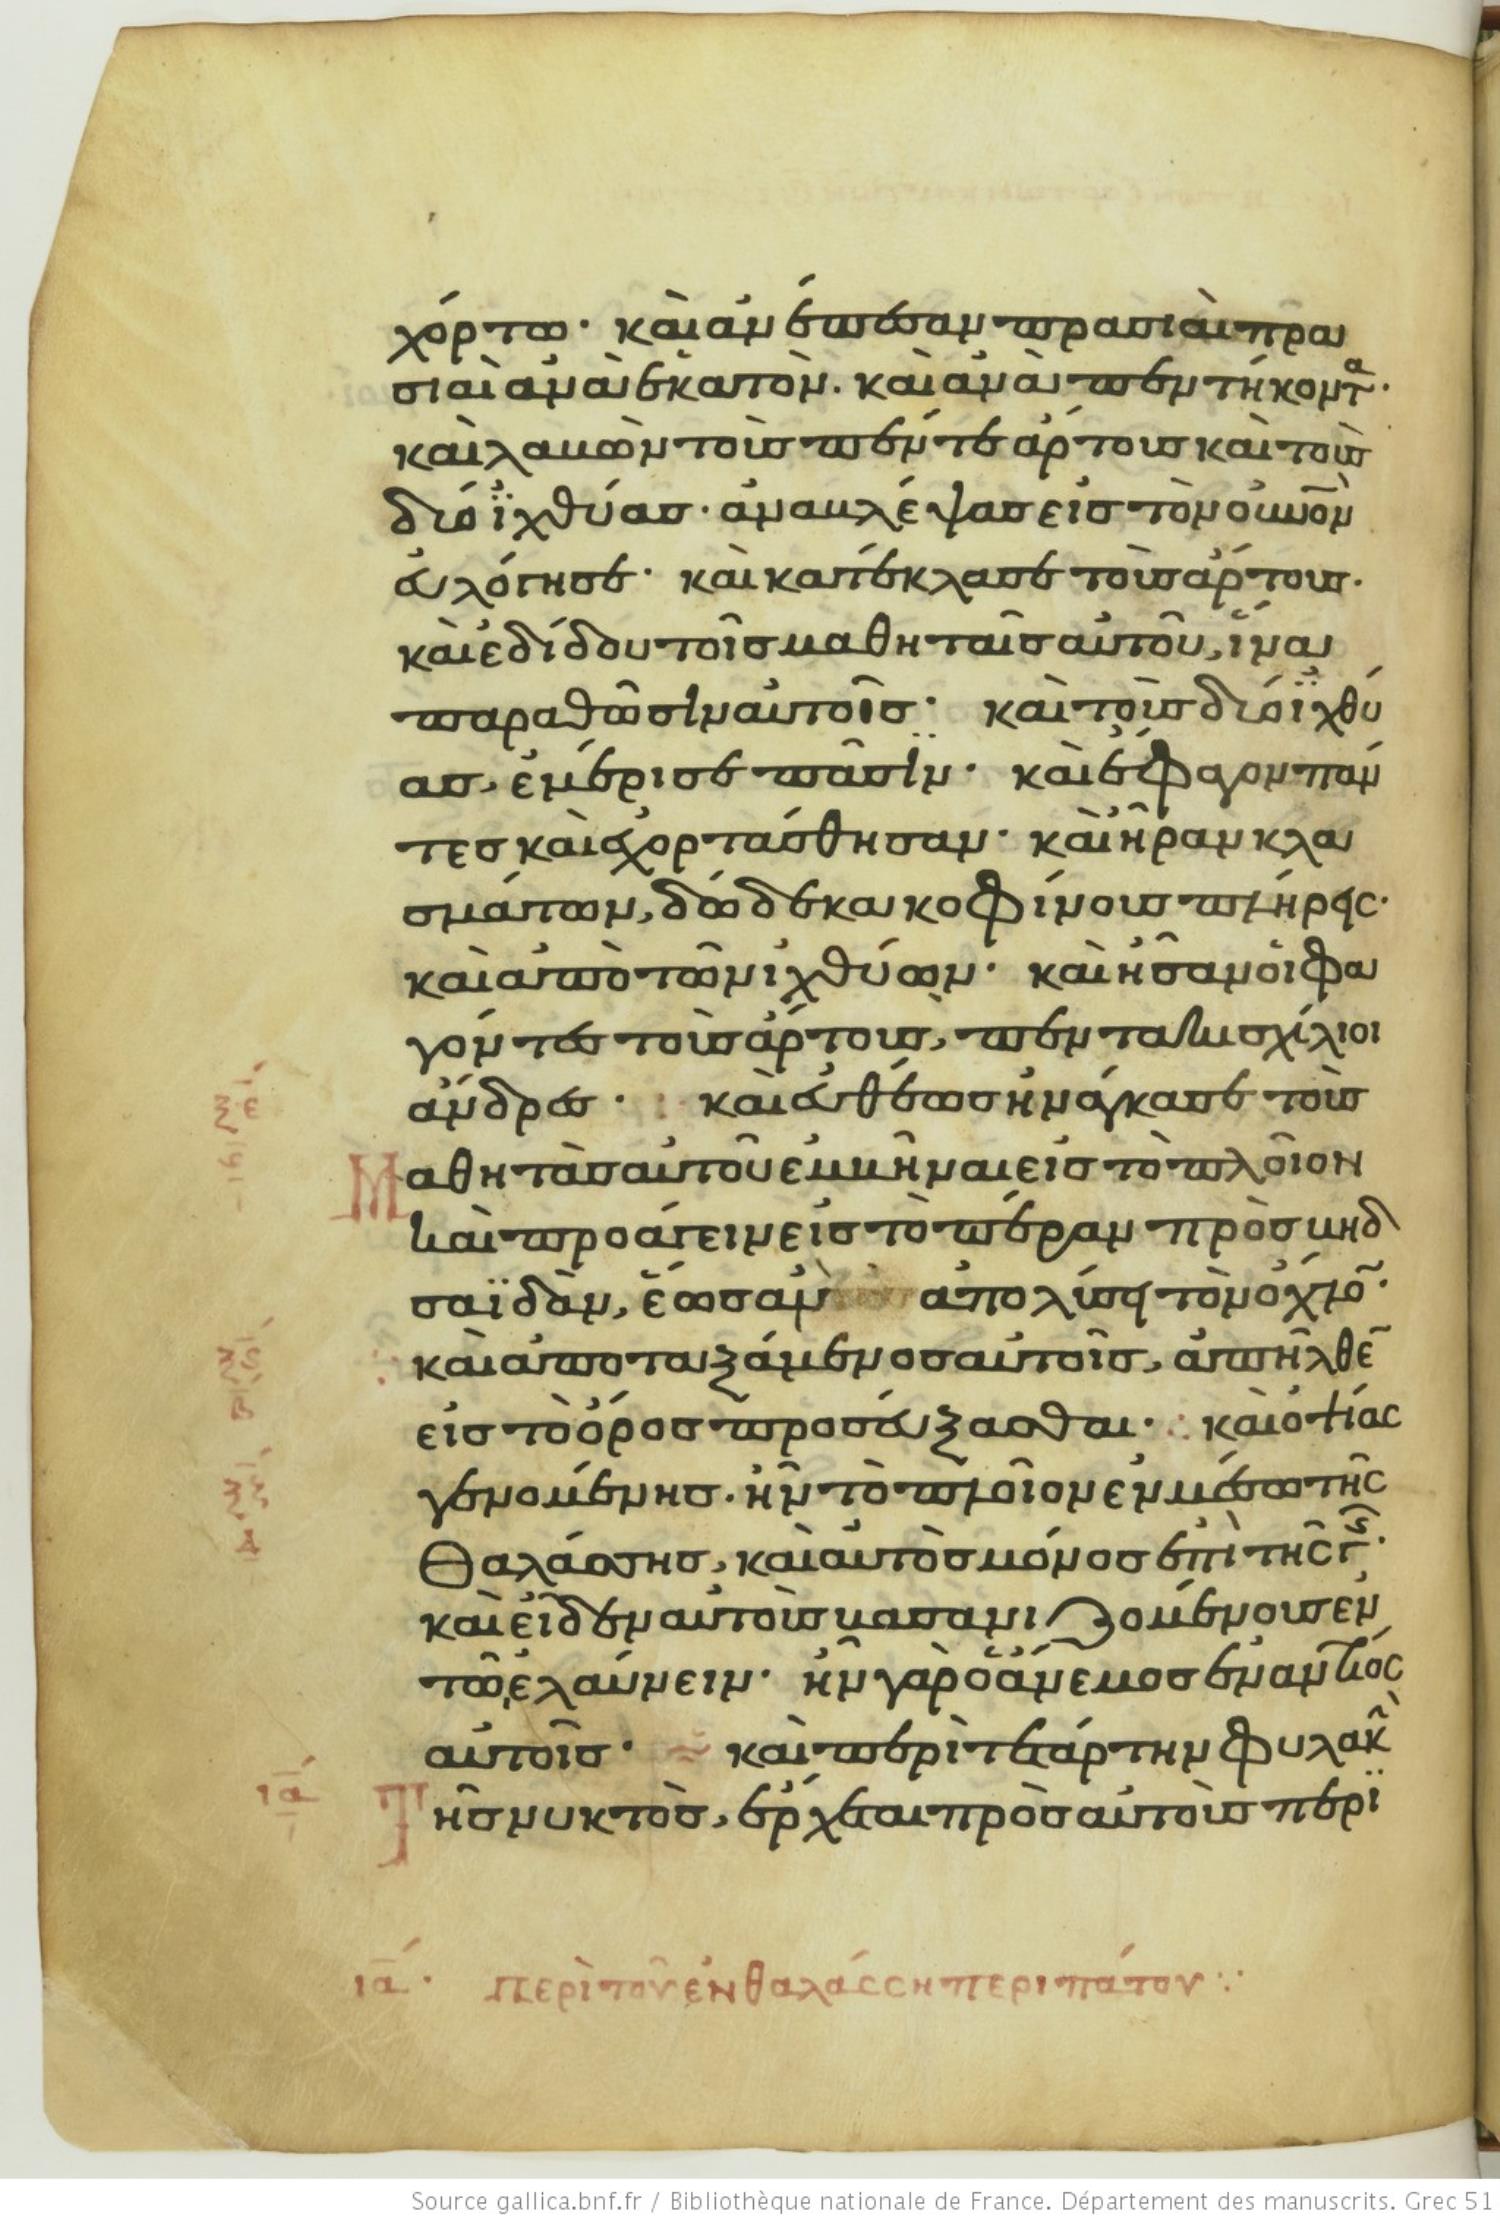 χόρτω· καὶ ἀνέπεσαν πρασιαὶ πρα
σιαὶ ἀνὰ ἑκατὸν. καὶ ἀνὰ πεντήκοντα·
καὶ λαβὼν τοὺς πέντε ἄρτους καὶ τοὺς
δύο ἰχθύας· ἀναβλέψας εἰς τὸν οὐνὸν
εὐλόγησε· καὶ κατέκλασε τοὺς ἄρτους.
καὶ ἐδίδου τοῖς μαθηταῖς αὐτοῦ, ἵνα
παραθῶσιν αὐτοῖς· καὶ τοὺς δύο ἰχθύ
ας, ἐμέρισε πᾶσιν· καὶ ἔφαγον πάν
τες καὶ ἐχορτάσθησαν· καὶ ἦραν κλα
σμάτων, δώδεκα κοφίνους πλήρεις·
καὶ ἀπὸ τῶν ἰχθύων· καὶ ἦσαν οἱ φα
γόντες τοὺς ἄρτους, πεντακισχίλιοι
ἄνδρες· καὶ εὐθέως ἠνάγκασε τοὺς
ξε
ις
Μαθητὰς αὐτοῦ ἐμβῆναι εἰς τὸ πλοῖον
καὶ προάγειν εἰς τὸ πέραν πρὸς βηδ
σαϊδὰν, ἕως ἂν ἀπολύσῃ τὸν ὄχλον·
ξς
β
καὶ ἀποταξάμενος αὐτοῖς, ἀπῆλθεν
εἰς τὸ ὄρος προσεύξασθαι· καὶ ὀψίας
ξζ
δ
γενομένης. ἦν τὸ πλοῖον ἐν μέσω τῆς
θαλάσσης, καὶ αὐτὸς μόνος ἐπὶ τῆς γῆς·
καὶ εἶδεν αὐτοὺς βασανιζομένους ἐν
τῶ ἐλαύνειν· ἦν γὰρ ὁ ἄνεμος ἐναντίος
αὐτοῖς· καὶ περὶ τετάρτην φυλακὴν
ια
Τῆς νυκτὸς, ἔρχεται πρὸς αὐτοὺς περι
ια· Περὶ τοῦ ἐν θαλάσση περιπάτου:·
Source gallica.bnf.fr / Bibliothèque nationale de France. Département des manuscrits. Grec 51